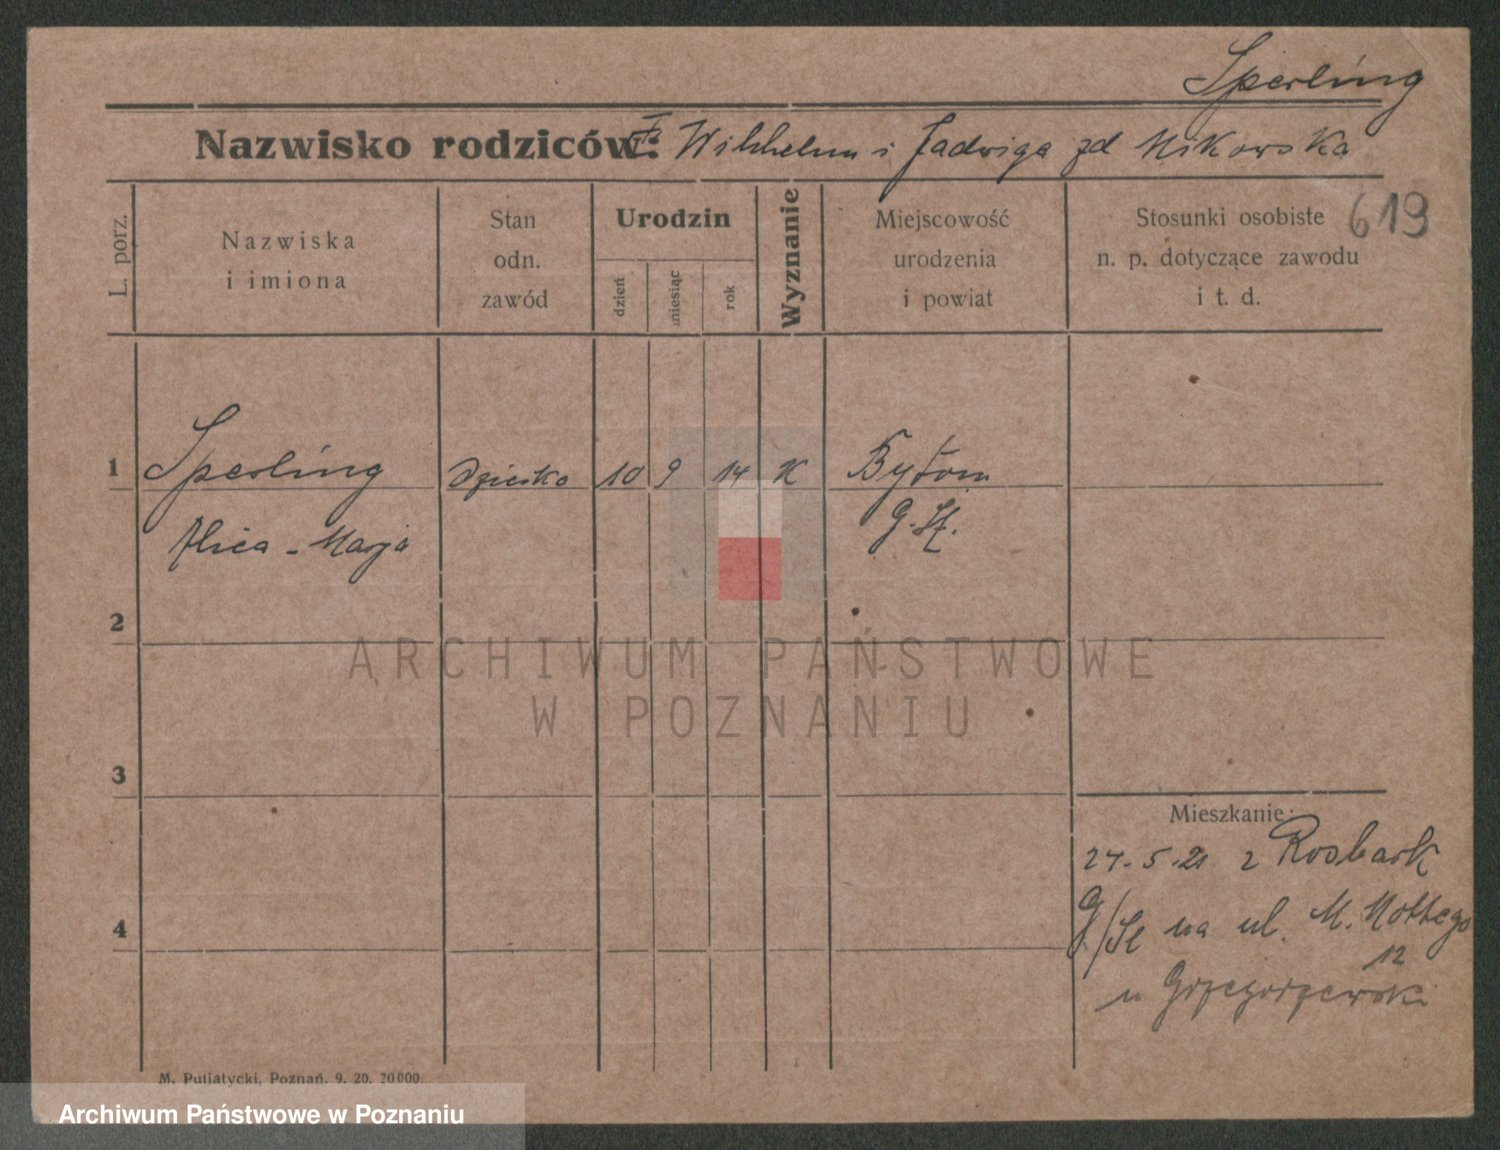 Sperling
Nazwisko rodziców: Wilhelm i Jadwiga zd Nikowska
619
L. porz.
Nazwiska
i imiona
Stan
odn.
zawód
Urodzin
dzień
miesiąc
rok
Wyznanie
Miejscowość
urodzenia
i powiat
Stosunki osobiste
n. p. dotyczące zawodu
i t. d.
1 Sperling dziecko 10 9 14 K Bytom
Alica - Marja G. Śl.
2
ARCHIWUM PAŃSTWOWE
W POZNANIU
3
Mieszkanie:
24.5.21 z Rosbark
G/Śl na ul. M. Mottego
12
4
u Grzegorzewski
M. Putiatycki, Poznań. 9. 20. 20000.
Archiwum Państwowe w Poznaniu